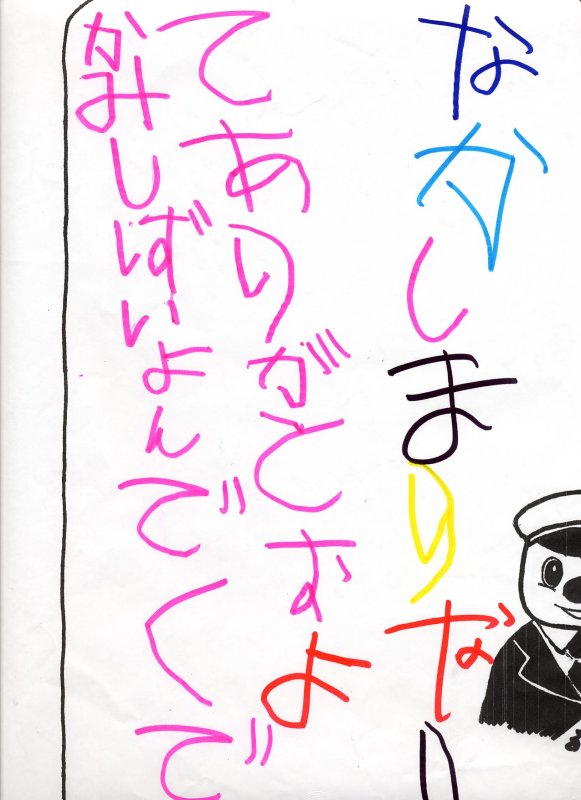 なかしまりなり
かみしばいよんでくで
てありがとずよ